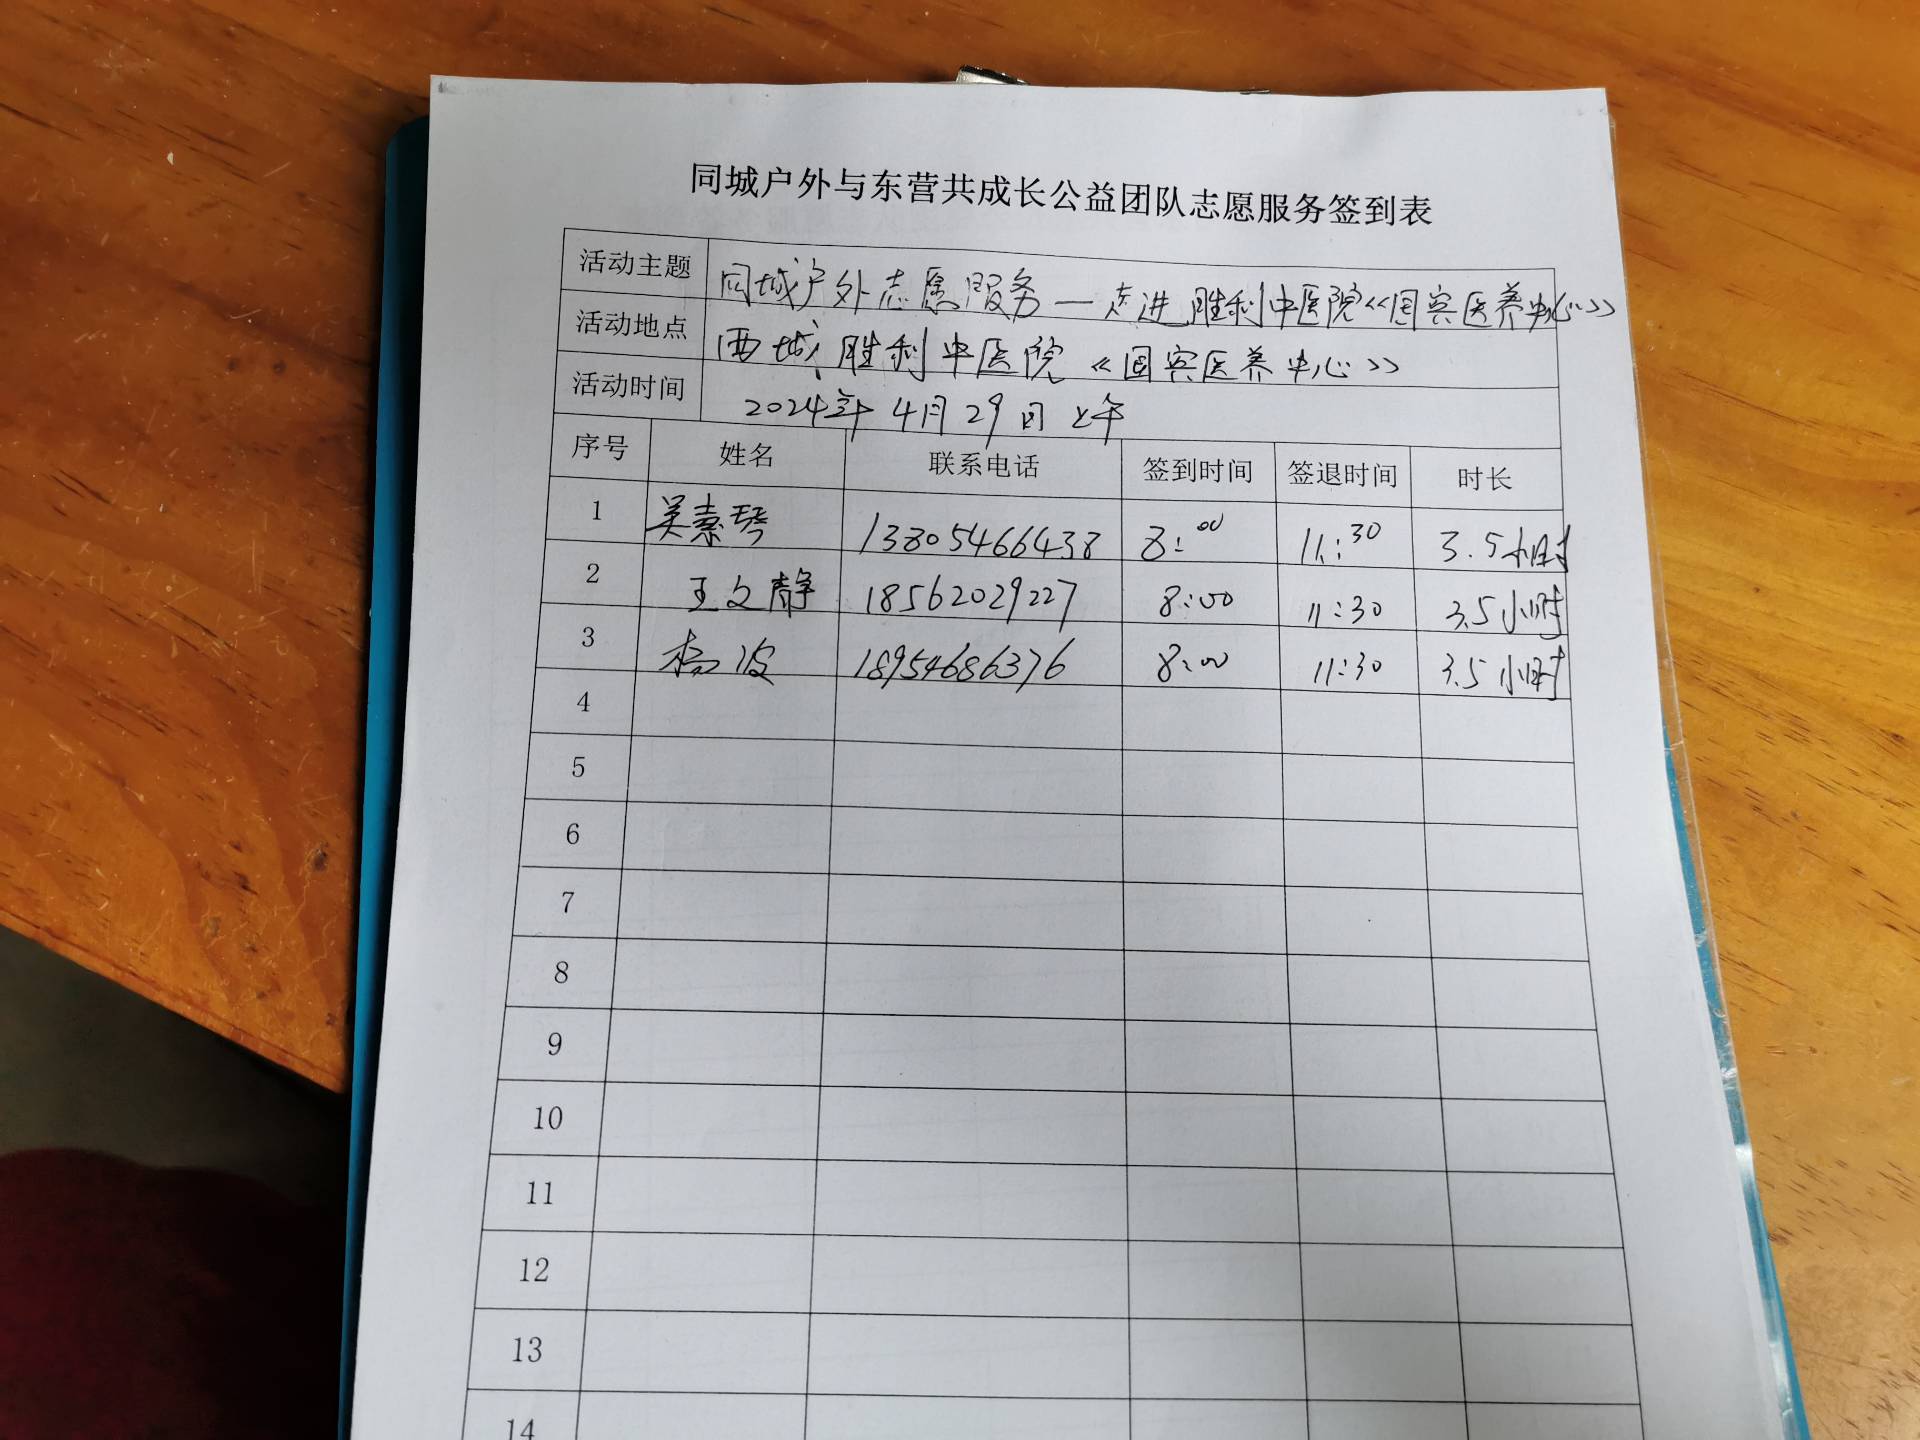 同城户外与东营共成长公益团队志愿服务签到表
活动主题 同城户外志愿服务—走进胜利中医院《国宾医养中心》
活动地点 西城胜利中医院《国宾医养中心》
活动时间 2024年4月29日上午
序号 姓名 联系电话 签到时间 签退时间 时长
1 吴素琴 13805466438 8:00 11:30 3.5小时
2 王文静 18562029227 8:00 11:30 3.5小时
3 杨波 18954686376 8:00 11:30 3.5小时
4
5
6
7
8
9
10
11
12
13
14